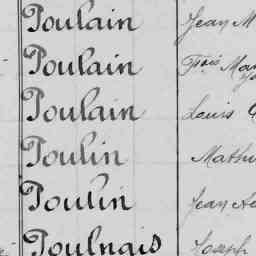 Poulain Jean M
Poulain Fçois Mar
Poulain Louis
Poulin Mathu
Poulin Jean
Poulnais Joseph